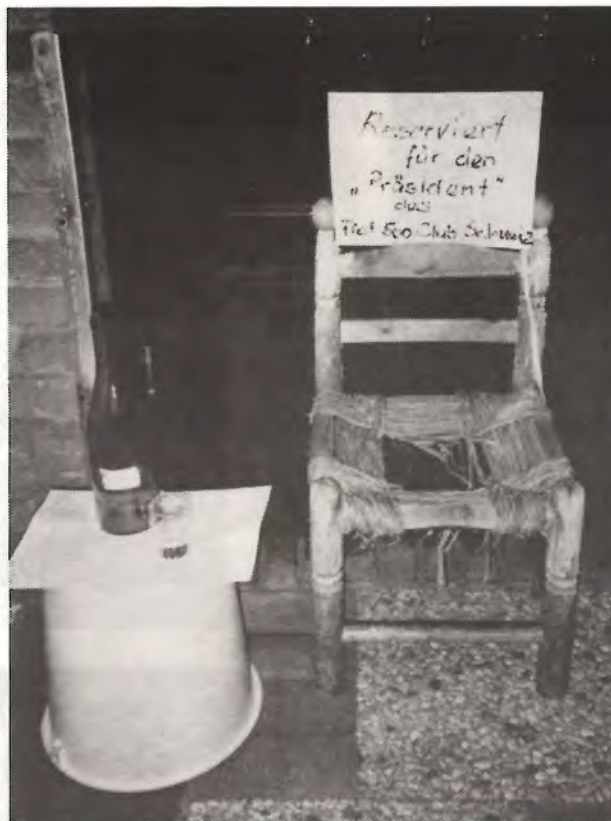 Reserviert
für den
„Präsident“
des
Fiat 500 Club Schweiz